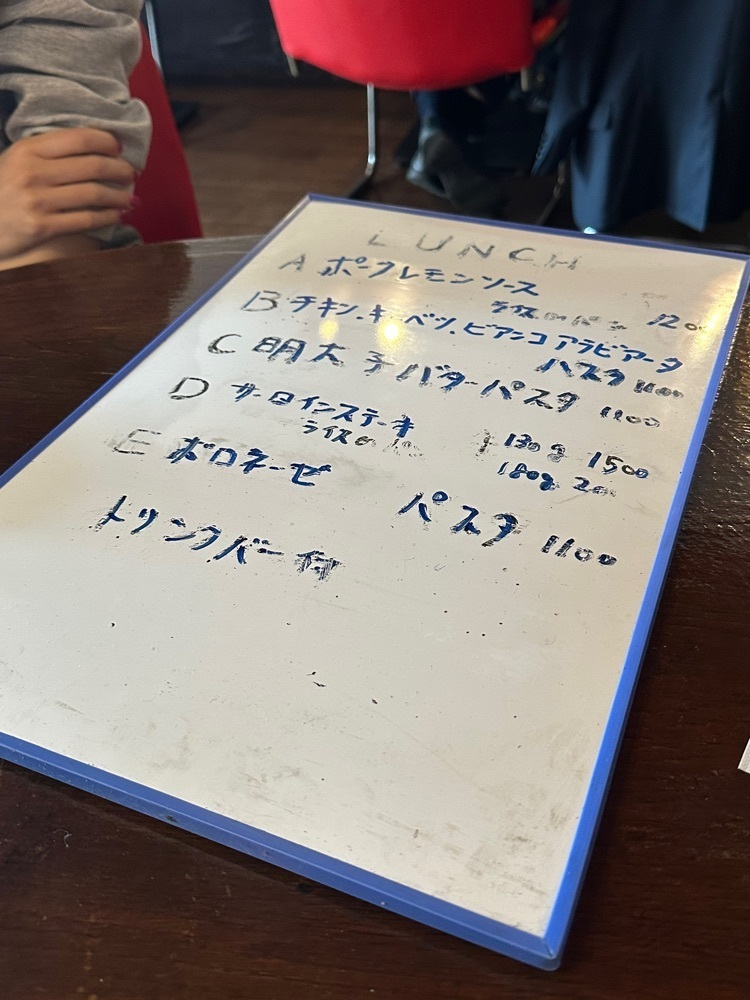 LUNCH
A ポークレモンソース
ライス or パン 120
B チキン.キャベツ.ビアンコ アラビアータ
パスタ 1100
C 明太子バターパスタ 1100
D サーロインステーキ 130g 1500
ライス or 180g
E ボロネーゼ パスタ 1100
ドリンクバー付